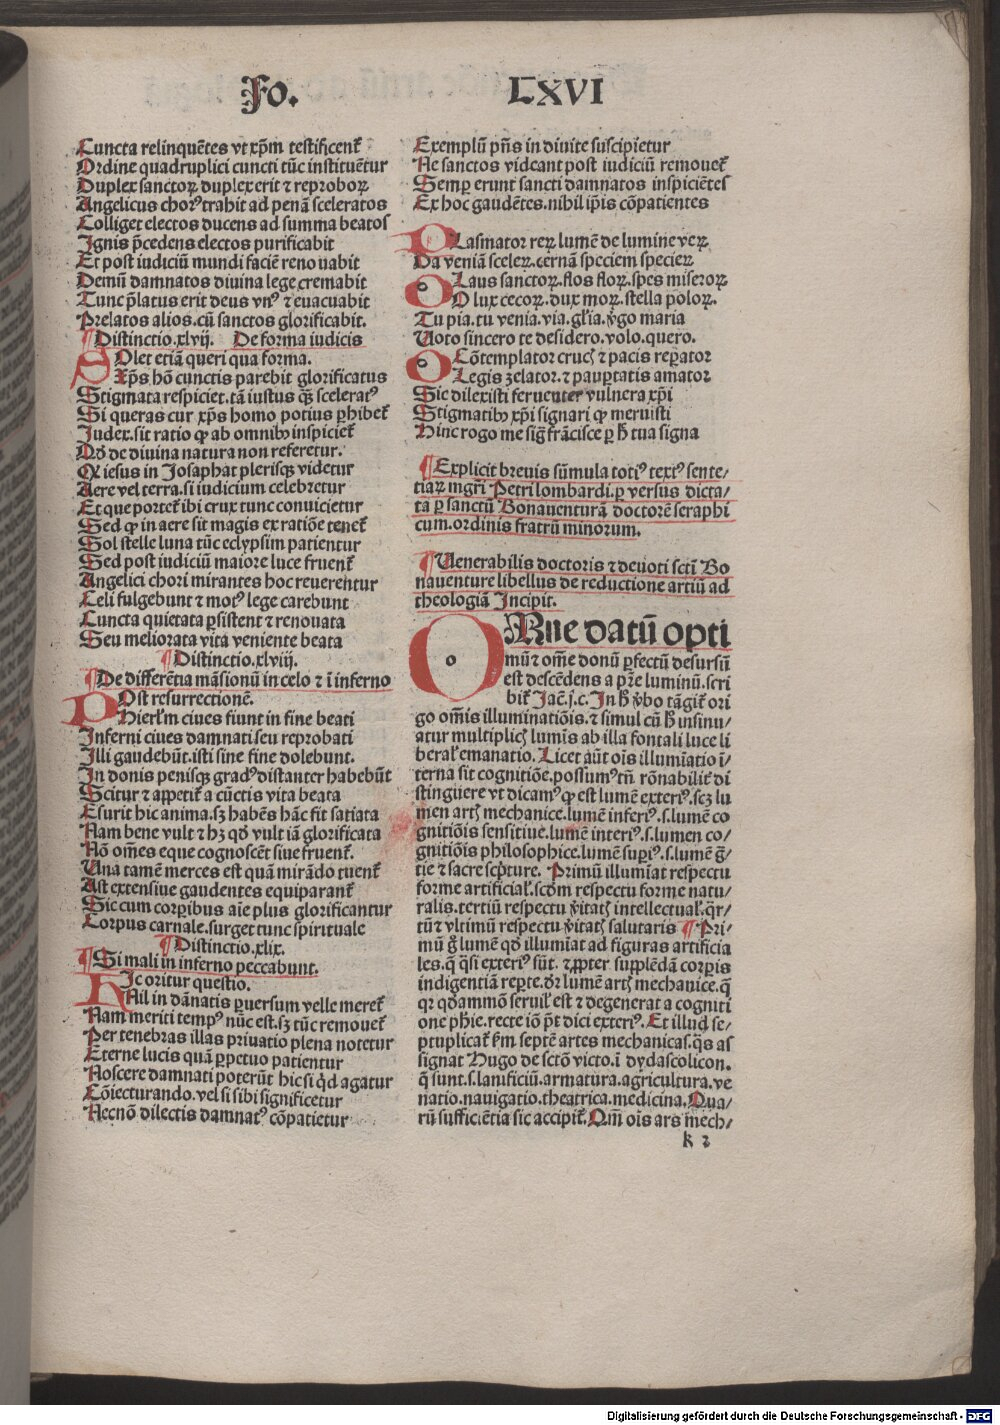 Fo. LXVI
Cuncta relinquẽtes vt xp̃m testificent᷑
Ordine quadruplici cuncti tũc instituẽtur
Duplex sanctoꝝ duplex erit ⁊ reproboꝝ
Angelicus chorꝰ trahit ad penã sceleratos
Colliget electos ducens ad summa beatos
Ignis p̃cedens electos purificabit
Et post iudiciũ mundi faciẽ renouabit
Demũ damnatos diuina lege cremabit
Tunc p̃latus erit deus vnꝰ ⁊ euacuabit
Prelatos alios. cũ sanctos glorificabit.
¶ Distinctio.xlvij. De forma iudicis
SOlet etiã queri qua forma.
Xp̃s hõ cunctis parebit glorificatus
Stigmata respiciet. tã iustus q̃ꝫ sceleratꝰ
Si queras cur xp̃s homo potius ꝑhibet᷑
Iudex. sit ratio ꝙ ab omnibꝰ inspiciet᷑
Qđ de diuina natura non referetur.
Et iesus in Iosaphat plerisqꝫ videtur
Aere vel terra. si iudicium celebretur
Et que portet᷑ ibi crux tunc conuicietur
Sed ꝙ in aere sit magis ex ratiõe tenet᷑
Sol stelle luna tũc eclypsim patientur
Sed post iudiciũ maiore luce fruent᷑
Angelici chori mirantes hoc reuerentur
Celi fulgebunt ⁊ motꝰ lege carebunt
Cuncta quietata ꝑsistent ⁊ renouata
Seu meliorata vita veniente beata
¶ Distinctio.xlviij.
¶ De differẽtia mãsionũ in celo ⁊ ĩ inferno
POst resurrectionẽ.
Hierlm̃ ciues fiunt in fine beati
Inferni ciues damnati seu reprobati
Illi gaudebũt. isti sine fine dolebunt.
In donis penisqꝫ gradꝰ distanter habebũt
Scitur ⁊ appetit᷑ a cũctis vita beata
Esurit hic anima. sꝫ habẽs hãc fit satiata
Nam bene vult ⁊ hꝫ qđ vult iã glorificata
Nõ om̃es eque cognoscẽt siue fruent᷑.
Una tamẽ merces est quã mirãdo tuent᷑
Ast extensiue gaudentes equiparant᷑
Sic cum corꝑibus aĩe plus glorificantur
Corpus carnale. surget tunc spirituale
¶ Distinctio.xlix.
¶ Si mali in inferno peccabunt.
HIc oritur questio.
Nil in dãnatis ꝑuersum velle meret᷑
Nam meriti tempꝰ nũc est. sꝫ tũc remouet᷑
Per tenebras illas priuatio plena notetur
Eterne lucis quã ꝑpetuo patientur
Noscere damnati poterũt hic si qđ agatur
Cõiecturando. vel si sibi significetur
Necnõ dilectis damnatꝰ cõpatietur
Exemplũ pñs in diuite suscipietur
Ne sanctos videant post iudiciũ remouet᷑
Semꝑ erunt sancti damnatos inspiciẽtes
Ex hoc gaudẽtes. nihil ip̃is cõpatientes
PLasmator reꝝ lumẽ de lumine veꝝ
Da veniã sceleꝝ. cernã speciem specieꝝ
OLaus sanctoꝝ. flos floꝝ. spes miseroꝝ
O lux cecoꝝ. dux moꝝ. stella poloꝝ.
Tu pia. tu venia. via. gl̃ia. ṽgo maria
Uoto sincero te desidero. volo. quero.
OCõtemplator cruc̨ ⁊ pacis reꝑator
Legis zelator. ⁊ pauꝑtatis amator
Sic dilexisti feruenter vulnera xp̃i
Stigmatibꝰ xp̃i signari ꝙ meruisti
Hinc rogo me sig᷑ frãcisce ꝑ h̃ tua signa
¶ Explicit breuis sũmula totiꝰ textꝰ sente⸗
tiaꝝ mgr̃i Petri lombardi. ꝑ versus dicta⸗
ta ꝑ sanctũ Bonauenturã doctorẽ seraphi
cum. ordinis fratrũ minorum.
¶ Uenerabilis doctoris ⁊ deuoti sct̃i Bo
nauenture libellus de reductione artiũ ad
theologiã Incipit.
OMne datũ opti
mũ ⁊ om̃e donũ ꝑfectũ desursũ
est descẽdens a pr̃e luminũ. scri
bit᷑ Iac̃.j.c. In h̃ ṽbo tãgit᷑ ori
go om̃is illuminatiõis. ⁊ simul cũ h̃ insinu⸗
atur multiplic̨ lumĩs ab illa fontali luce li
beral᷑ emanatio. Licet aũt oĩs illumĩatio ĩ⸗
terna sit cognitiõe. possumꝰ tñ rõnabilit᷑ di
stinguere vt dicamꝰ ꝙ est lumẽ exteriꝰ. scꝫ lu
men art̨ mechanice. lumẽ inferiꝰ. s. lumẽ co
gnitiõis sensitiue. lumẽ interiꝰ. s. lumen co⸗
gnitiõis philosophice. lumẽ suꝑiꝰ. s. lumẽ g̃⸗
tie ⁊ sacre scp̃ture. Primũ illumĩat respectu
forme artificial᷑. scđm respectu forme natu⸗
ralis. tertiũ respectu ṽitat̨ intellectual᷑. q̃r⸗
tũ ⁊ vltimũ respectu ṽitat̨ salutaris ¶ Pri⸗
mũ g̃ lumẽ qđ illumĩat ad figuras artificia
les. q̃ q̃si exteriꝰ sũt. ⁊ ꝓpter supplẽdã corꝑis
indigentiã reꝑte. dr̃ lumẽ art̨ mechanice. q̃
qr qđammõ seruil᷑ est ⁊ degenerat a cogniti
one ph̃ie. recte iõ p̃t dici exteriꝰ. Et illud se⸗
ptuplicat᷑ ẜm septẽ artes mechanicas. q̃s as
signat Hugo de sct̃o victo. ĩ dydascolicon.
q̃ sunt. s. lanificiũ. armatura. agricultura. ve
natio. nauigatio. theatrica. medicina. Qua⸗
rũ sufficiẽtia sic accipit᷑. Qm̃ oĩs ars mech⸗
k 2
Digitalisierung gefördert durch die Deutsche Forschungsgemeinschaft - DFG